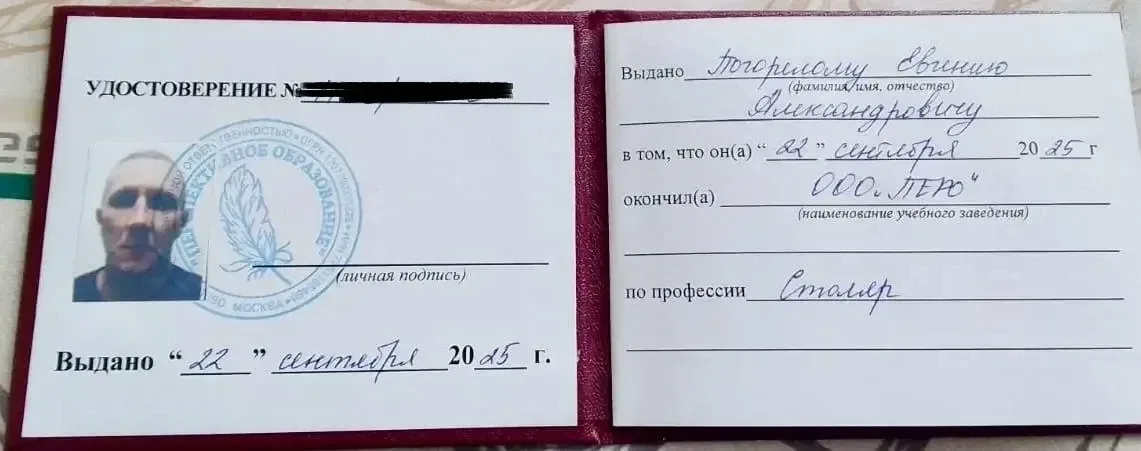 УДОСТОВЕРЕНИЕ №
"ПЕРСПЕКТИВНОЕ ОБРАЗОВАНИЕ"
ОТВЕТСТВЕННОСТЬЮ
МОСКВА
(личная подпись)
Выдано “ 22 ” сентября 20 25 г.
Выдано Погорелому Евгению
(фамилия, имя, отчество)
Александровичу
в том, что он(а) “ 22 ” сентября 20 25 г
окончил(а) ООО „ПЕРО“
(наименование учебного заведения)
по профессии Столяр